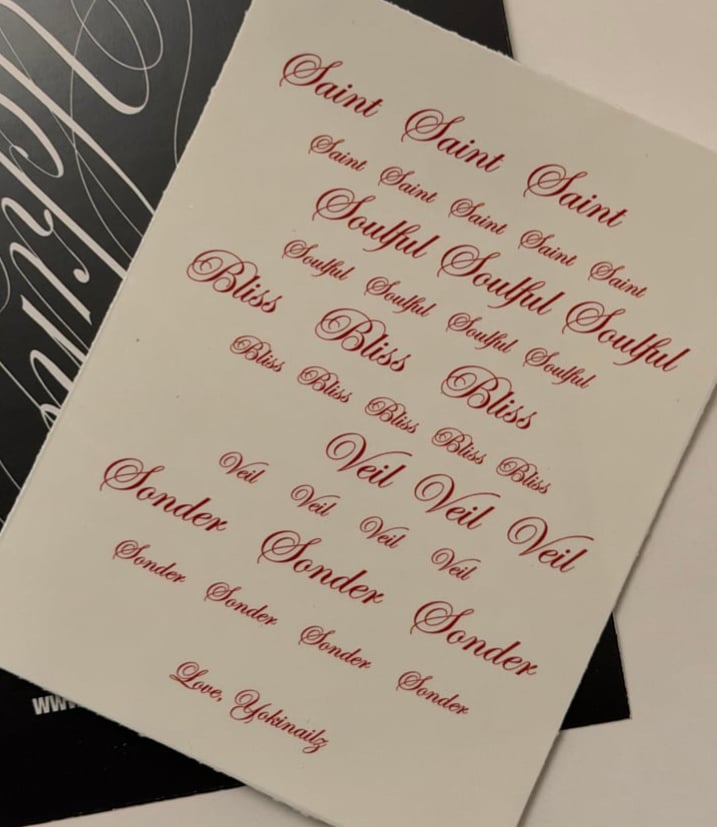 Saint Saint Saint
Saint Saint Saint Saint Saint
Soulful Soulful Soulful
Soulful Soulful Soulful Soulful
Bliss Bliss Bliss
Bliss Bliss Bliss Bliss Bliss
Veil Veil Veil
Veil Veil Veil Veil
Sonder Sonder Sonder
Sonder Sonder Sonder Sonder
Love, Yokinailz
www.